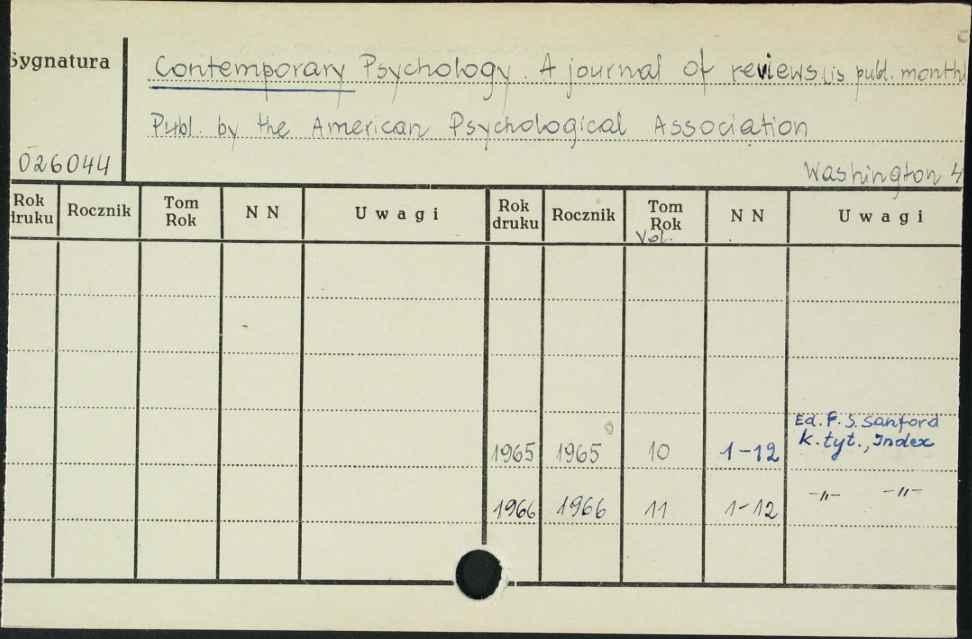 Sygnatura
Contemporary Psychology. A journal of reviews is publ. month
Publ. by the American Psychological Association
026044
Washington 4
Rok druku Rocznik Tom Rok N N Uwagi Rok druku Rocznik Tom Rok Vol. N N Uwagi
Ed. F. S. Sanford
1965 1965 10 1-12 k. tyt., Index
1966 1966 11 1-12 -"- -"-